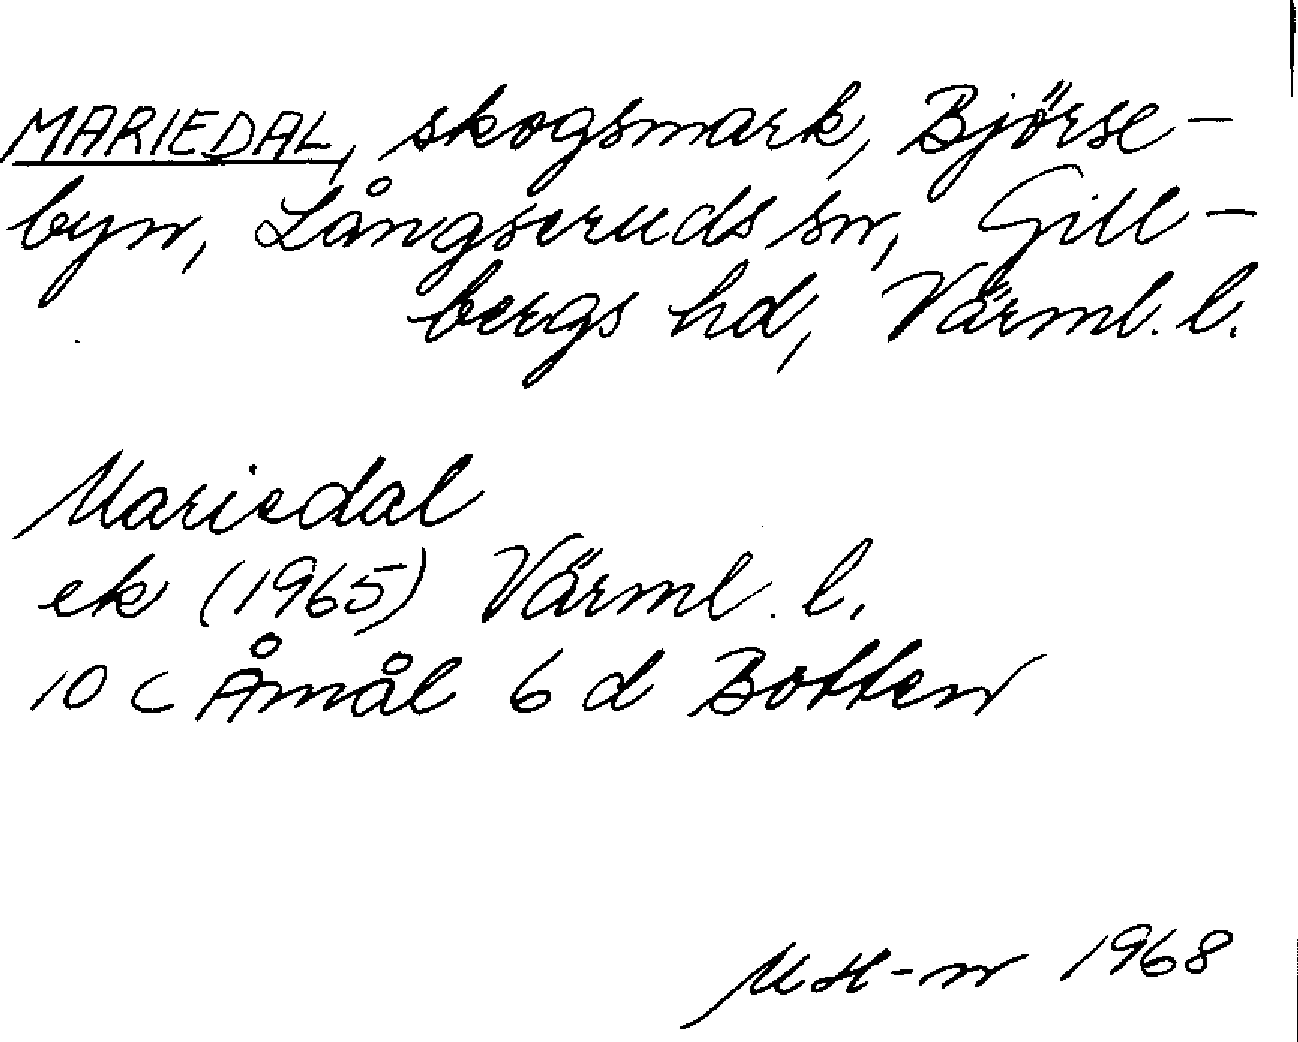 MARIEDAL, skogsmark, Björse-
byn, Långseruds sn, Gill-
bergs hd, Värml. l.
Mariedal
ek (1965) Värml. l.
10 C Åmål 6 d Botten
MH-n 1968